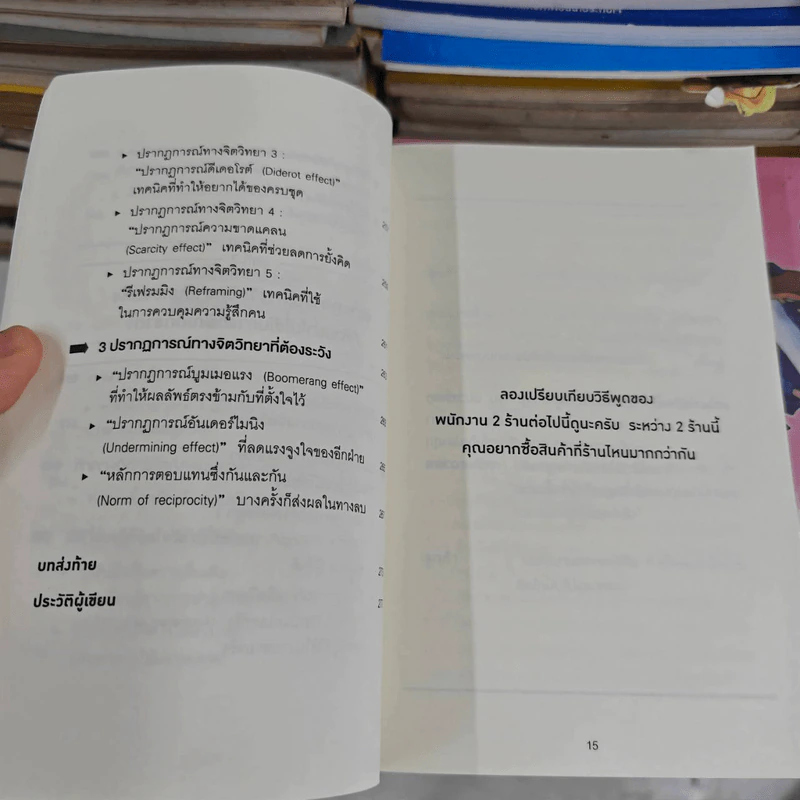 ▸ ปรากฏการณ์ทางจิตวิทยา 3 :
“ปรากฏการณ์ดีเดอโรต์ (Diderot effect)”
เทคนิคที่ทำให้อยากได้ของครบชุด
▸ ปรากฏการณ์ทางจิตวิทยา 4 :
“ปรากฏการณ์ความขาดแคลน
(Scarcity effect)” เทคนิคที่ช่วยลดการยั้งคิด
▸ ปรากฏการณ์ทางจิตวิทยา 5 :
“รีเฟรมมิง (Reframing)” เทคนิคที่ใช้
ในการควบคุมความรู้สึกคน
➡ 3 ปรากฏการณ์ทางจิตวิทยาที่ต้องระวัง
▸ “ปรากฏการณ์บูมเมอแรง (Boomerang effect)”
ที่ทำให้ผลลัพธ์ตรงข้ามกับที่ตั้งใจไว้
▸ “ปรากฏการณ์อันเดอร์ไมนิง
(Undermining effect)” ที่ลดแรงจูงใจของอีกฝ่าย
▸ “หลักการตอบแทนซึ่งกันและกัน
(Norm of reciprocity)” บางครั้งก็ส่งผลในทางลบ
บทส่งท้าย
ประวัติผู้เขียน
ลองเปรียบเทียบวิธีพูดของ
พนักงาน 2 ร้านต่อไปนี้ดูนะครับ ระหว่าง 2 ร้านนี้
คุณอยากซื้อสินค้าที่ร้านไหนมากกว่ากัน
15